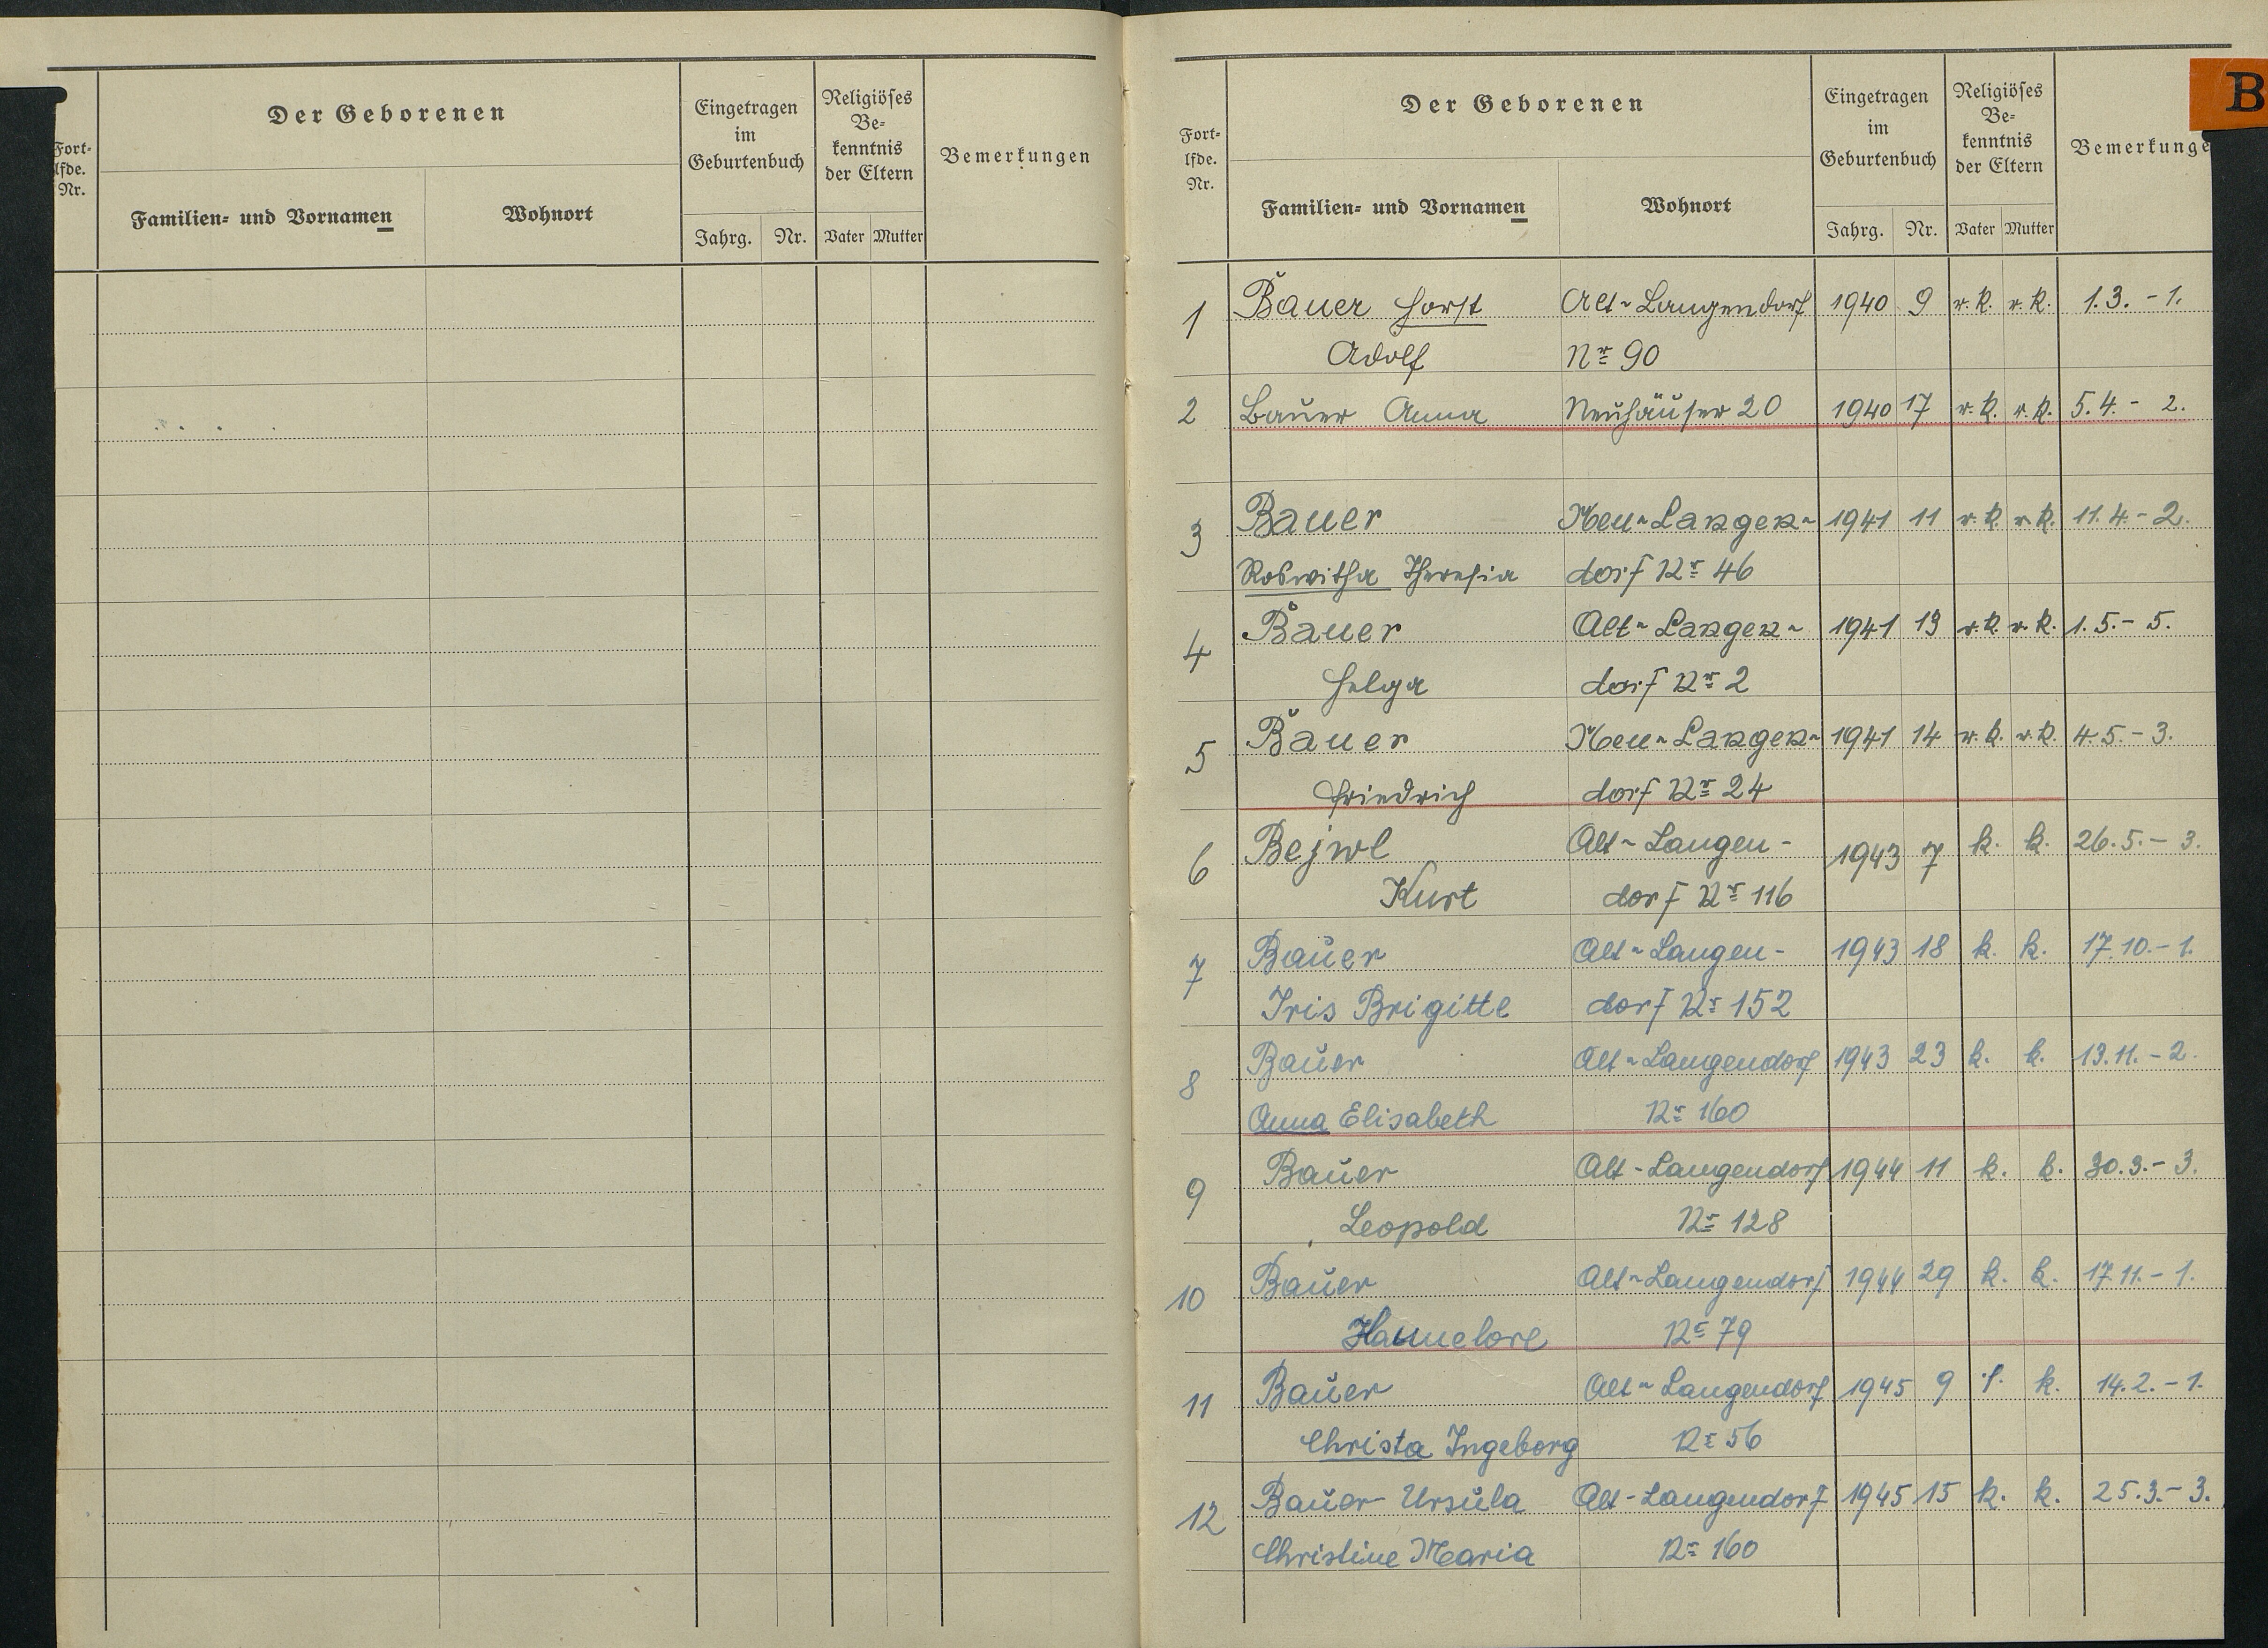 Fort-
lfde.
Nr.
Der Geborenen
Familien- und Vornamen
Wohnort
Eingetragen
im
Geburtenbuch
Jahrg. Nr.
Religiöses
Be-
kenntnis
der Eltern
Vater Mutter
Bemerkungen
Fort-
lfde.
Nr.
Der Geborenen
Familien- und Vornamen
Wohnort
Eingetragen
im
Geburtenbuch
Jahrg. Nr.
Religiöses
Be-
kenntnis
der Eltern
Vater Mutter
Bemerkunge
B
1 Bauer Horst Alt-Langendorf 1940 9 r.k. r.k. 1.3. - 1.
Adolf Nr 90
2 Bauer Anna Neuhäuser 20 1940 17 r.k. r.k. 5.4. - 2.
3 Bauer Neu-Langen- 1941 11 r.k. r.k. 11.4. - 2.
Roswitha Theresia dorf Nr 46
4 Bauer Alt-Langen- 1941 13 r.k. r.k. 1.5. - 5.
Helga dorf Nr 2
5 Bauer Neu-Langen- 1941 14 r.k. r.k. 4.5. - 3.
Friedrich dorf Nr 24
6 Bejwl Alt-Langen- 1943 7 k. k. 26.5. - 3.
Kurt dorf Nr 116
7 Bauer Alt-Langen- 1943 18 k. k. 17.10. - 1.
Iris Brigitte dorf Nr 152
8 Bauer Alt-Langendorf 1943 23 k. k. 13.11. - 2.
Anna Elisabeth Nr 160
9 Bauer Alt-Langendorf 1944 11 k. k. 30.3. - 3.
Leopold Nr 128
10 Bauer Alt-Langendorf 1944 29 k. k. 17.11. - 1.
Hannelore Nr 79
11 Bauer Alt-Langendorf 1945 9 k. 14.2. - 1.
Christa Ingeborg Nr 56
12 Bauer Ursula Alt-Langendorf 1945 15 k. k. 25.3. - 3.
Christine Maria Nr 160